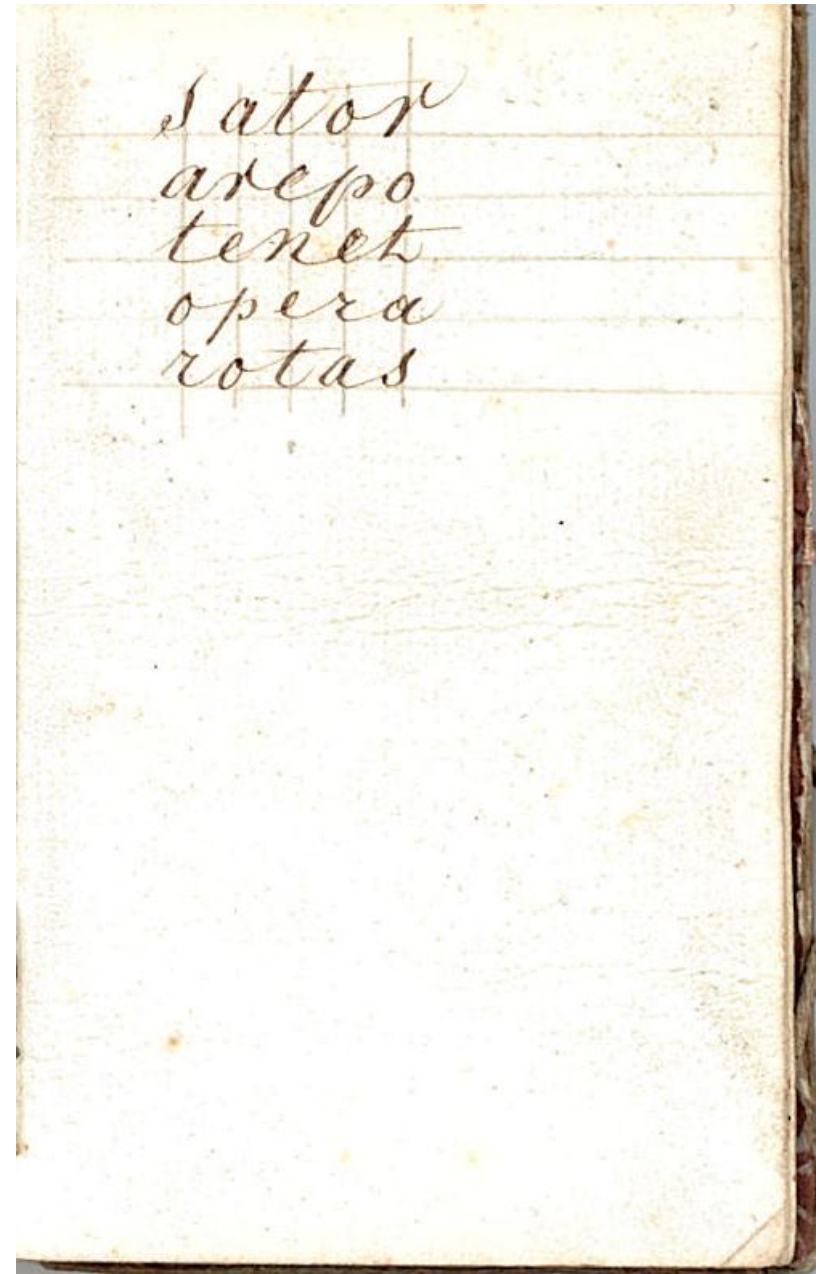 sator
arepo
tenet
opera
rotas